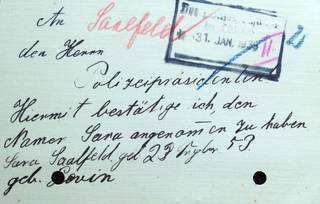 An Saalfeld
den Herrn
31. JAN. 1939
II.
Polizeipräsidenten
Hiermit bestätige ich, den
Namen Sara angenommen zu haben
Sara Saalfeld, geb 23 53
geb. Levin